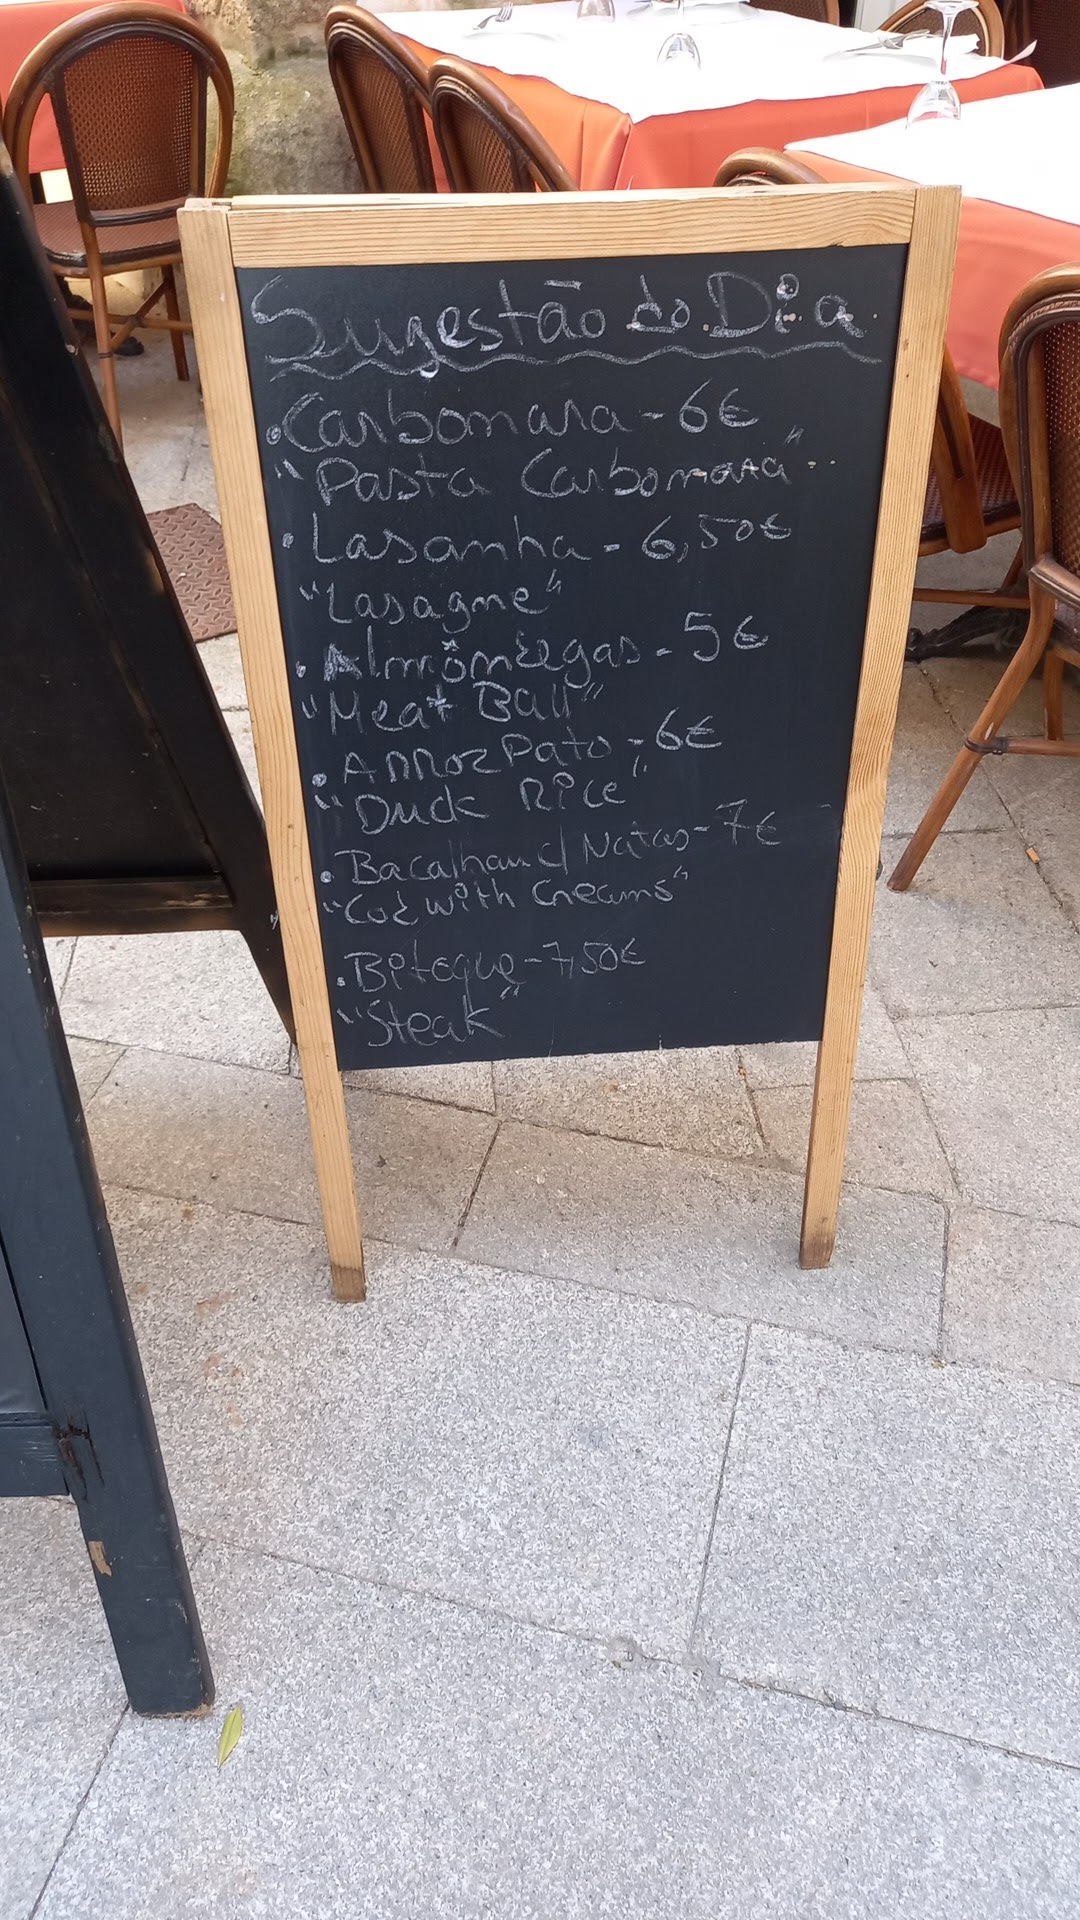 Sugestão do Dia
• Carbonara - 6€
"Pasta Carbonara"
• Lasanha - 6,50€
"Lasagne"
• Almôndegas - 5€
"Meat Ball"
• Arroz Pato - 6€
"Duck Rice"
• Bacalhau c/ Natas - 7€
"Cod with Creams"
• Bitoque - 7,50€
"Steak"